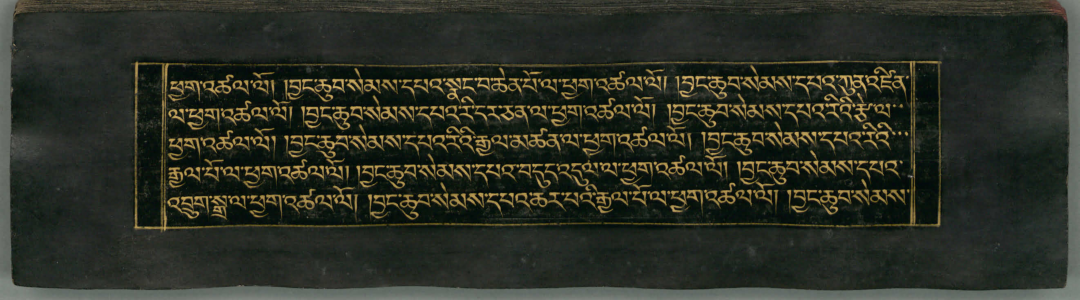 ཕྱག་འཚལ་ལོ། །བྱང་ཆུབ་སེམས་དཔའ་སྣང་བ་ཆེན་པོ་ལ་ཕྱག་འཚལ་ལོ། །བྱང་ཆུབ་སེམས་དཔའ་ཀུན་འཛིན་
ལ་ཕྱག་འཚལ་ལོ། །བྱང་ཆུབ་སེམས་དཔའ་རི་དར་ཅན་ལ་ཕྱག་འཚལ་ལོ། །བྱང་ཆུབ་སེམས་དཔའ་རིའི་རྩེ་ལ་
ཕྱག་འཚལ་ལོ། །བྱང་ཆུབ་སེམས་དཔའ་རིའི་རྒྱལ་མཚན་ལ་ཕྱག་འཚལ་ལོ། །བྱང་ཆུབ་སེམས་དཔའ་རིའི་
རྒྱལ་པོ་ལ་ཕྱག་འཚལ་ལོ། །བྱང་ཆུབ་སེམས་དཔའ་བདུད་འདུལ་ལ་ཕྱག་འཚལ་ལོ། །བྱང་ཆུབ་སེམས་དཔའ་
འབྲུག་སྒྲ་ལ་ཕྱག་འཚལ་ལོ། །བྱང་ཆུབ་སེམས་དཔའ་ཆར་པའི་རྒྱལ་པོ་ལ་ཕྱག་འཚལ་ལོ། །བྱང་ཆུབ་སེམས་